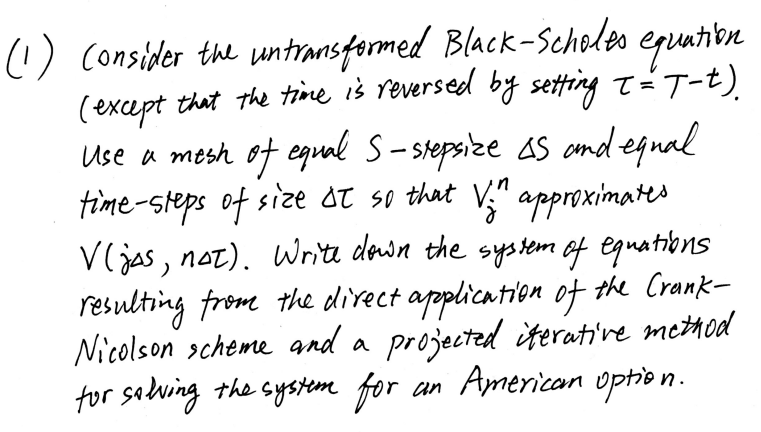 (1) Consider the untransformed Black-Scholes equation
(except that the time is reversed by setting τ = T-t).
Use a mesh of equal S-stepsize ΔS and equal
time-steps of size Δτ so that V_j^n approximates
V(jΔS, nΔτ). Write down the system of equations
resulting from the direct application of the Crank-
Nicolson scheme and a projected iterative method
for solving the system for an American option.